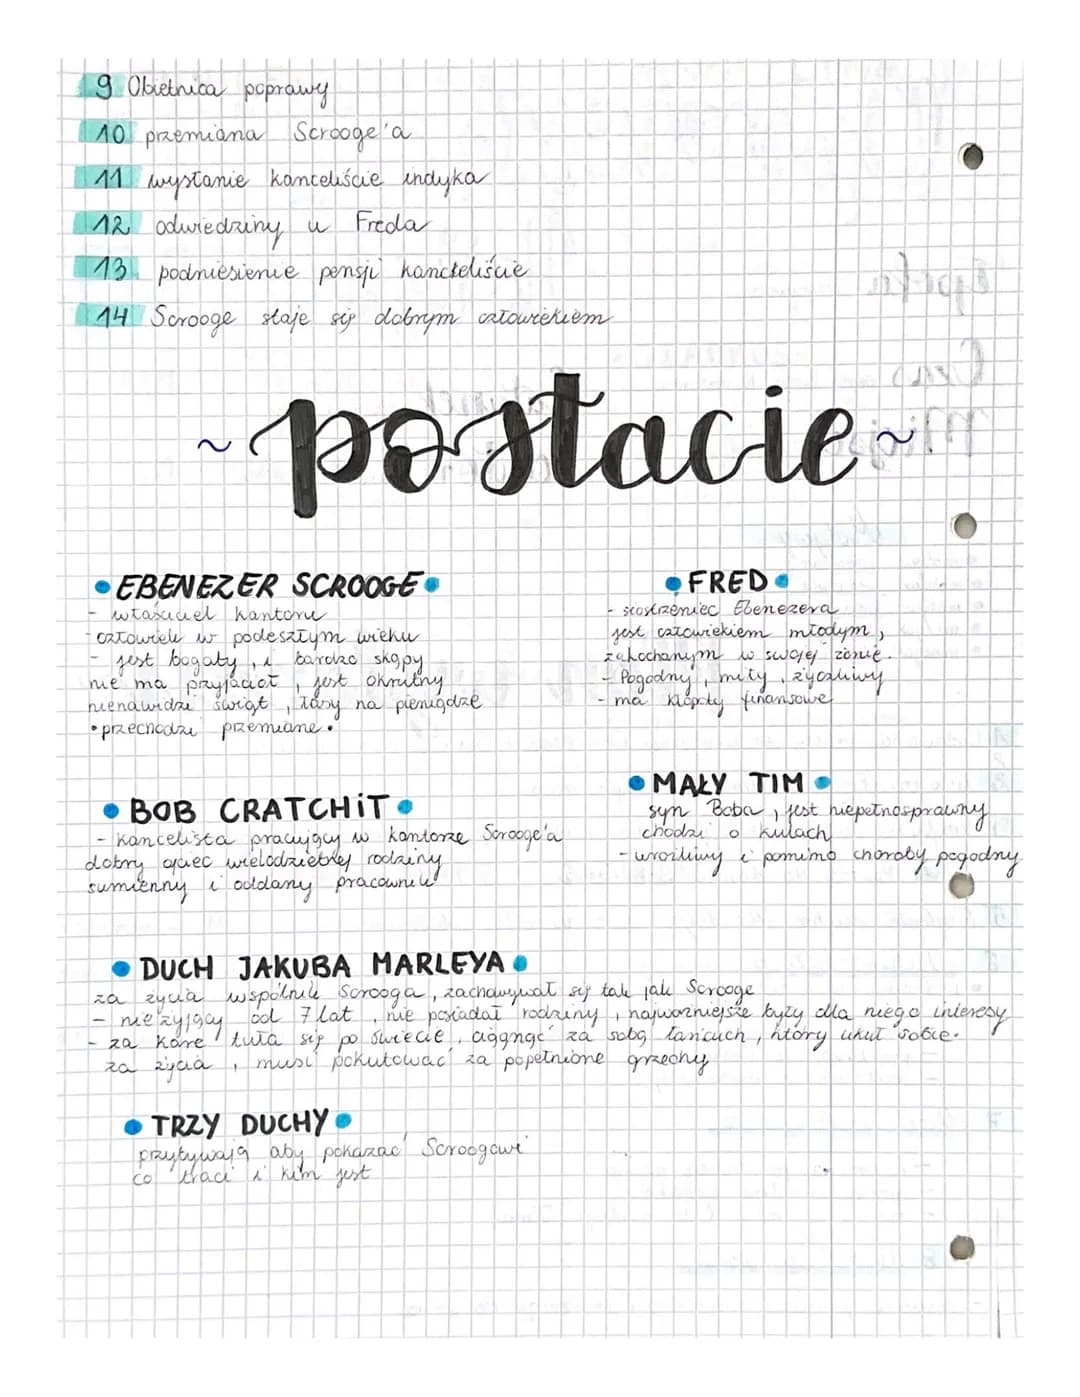 9 Obietnica poprawy
10 przemiana Scrooge'a
11 wysłanie kanceliście indyka
12 odwiedziny u Freda
13 podniesienie pensji kancteliście
14 Scrooge staje się dobrym człowiekiem
~postacie~
• EBENEZER SCROOGE •
- właściciel kantoru
- człowiek w podeszłym wieku
- jest bogaty, i bardzo skąpy
nie ma przyjaciół, jest okrutny
nienawidzi świąt, łasy na pieniądze
• przechodzi przemianę •
• FRED •
- siostrzeniec Ebenezera
jest człowiekiem młodym,
zakochanym w swojej żonie.
- Pogodny, miły, życzliwy
- ma kłopoty finansowe
• BOB CRATCHIT •
- kancelista pracujący w kantorze Scrooge'a
dobry ojciec wielodzietnej rodziny
sumienny i oddany pracownik
• MAŁY TIM •
syn Boba, jest niepełnosprawny
chodzi o kulach
- wrażliwy i pomimo choroby pogodny
• DUCH JAKUBA MARLEYA •
za życia wspólnik Scrooga, zachowywał się tak jak Scrooge
- nieżyjący od 7 lat, nie posiadał rodziny, najważniejsze były dla niego interesy
- za karę tuła się po świecie, ciągnąć za sobą łańcuch, który ukuł sobie.
za życia, musi pokutować za popełnione grzechy
• TRZY DUCHY •
przybywają aby pokazać Scroogowi
co traci i kim jest